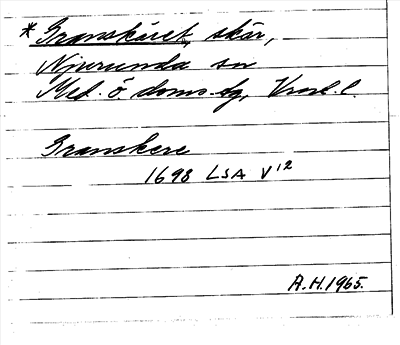 * Granskäret, skär,
Njurunda sn
Med. ö. doms. bg, Vnrl l.
Granskere
1693 LSA V12
A.H. 1965.